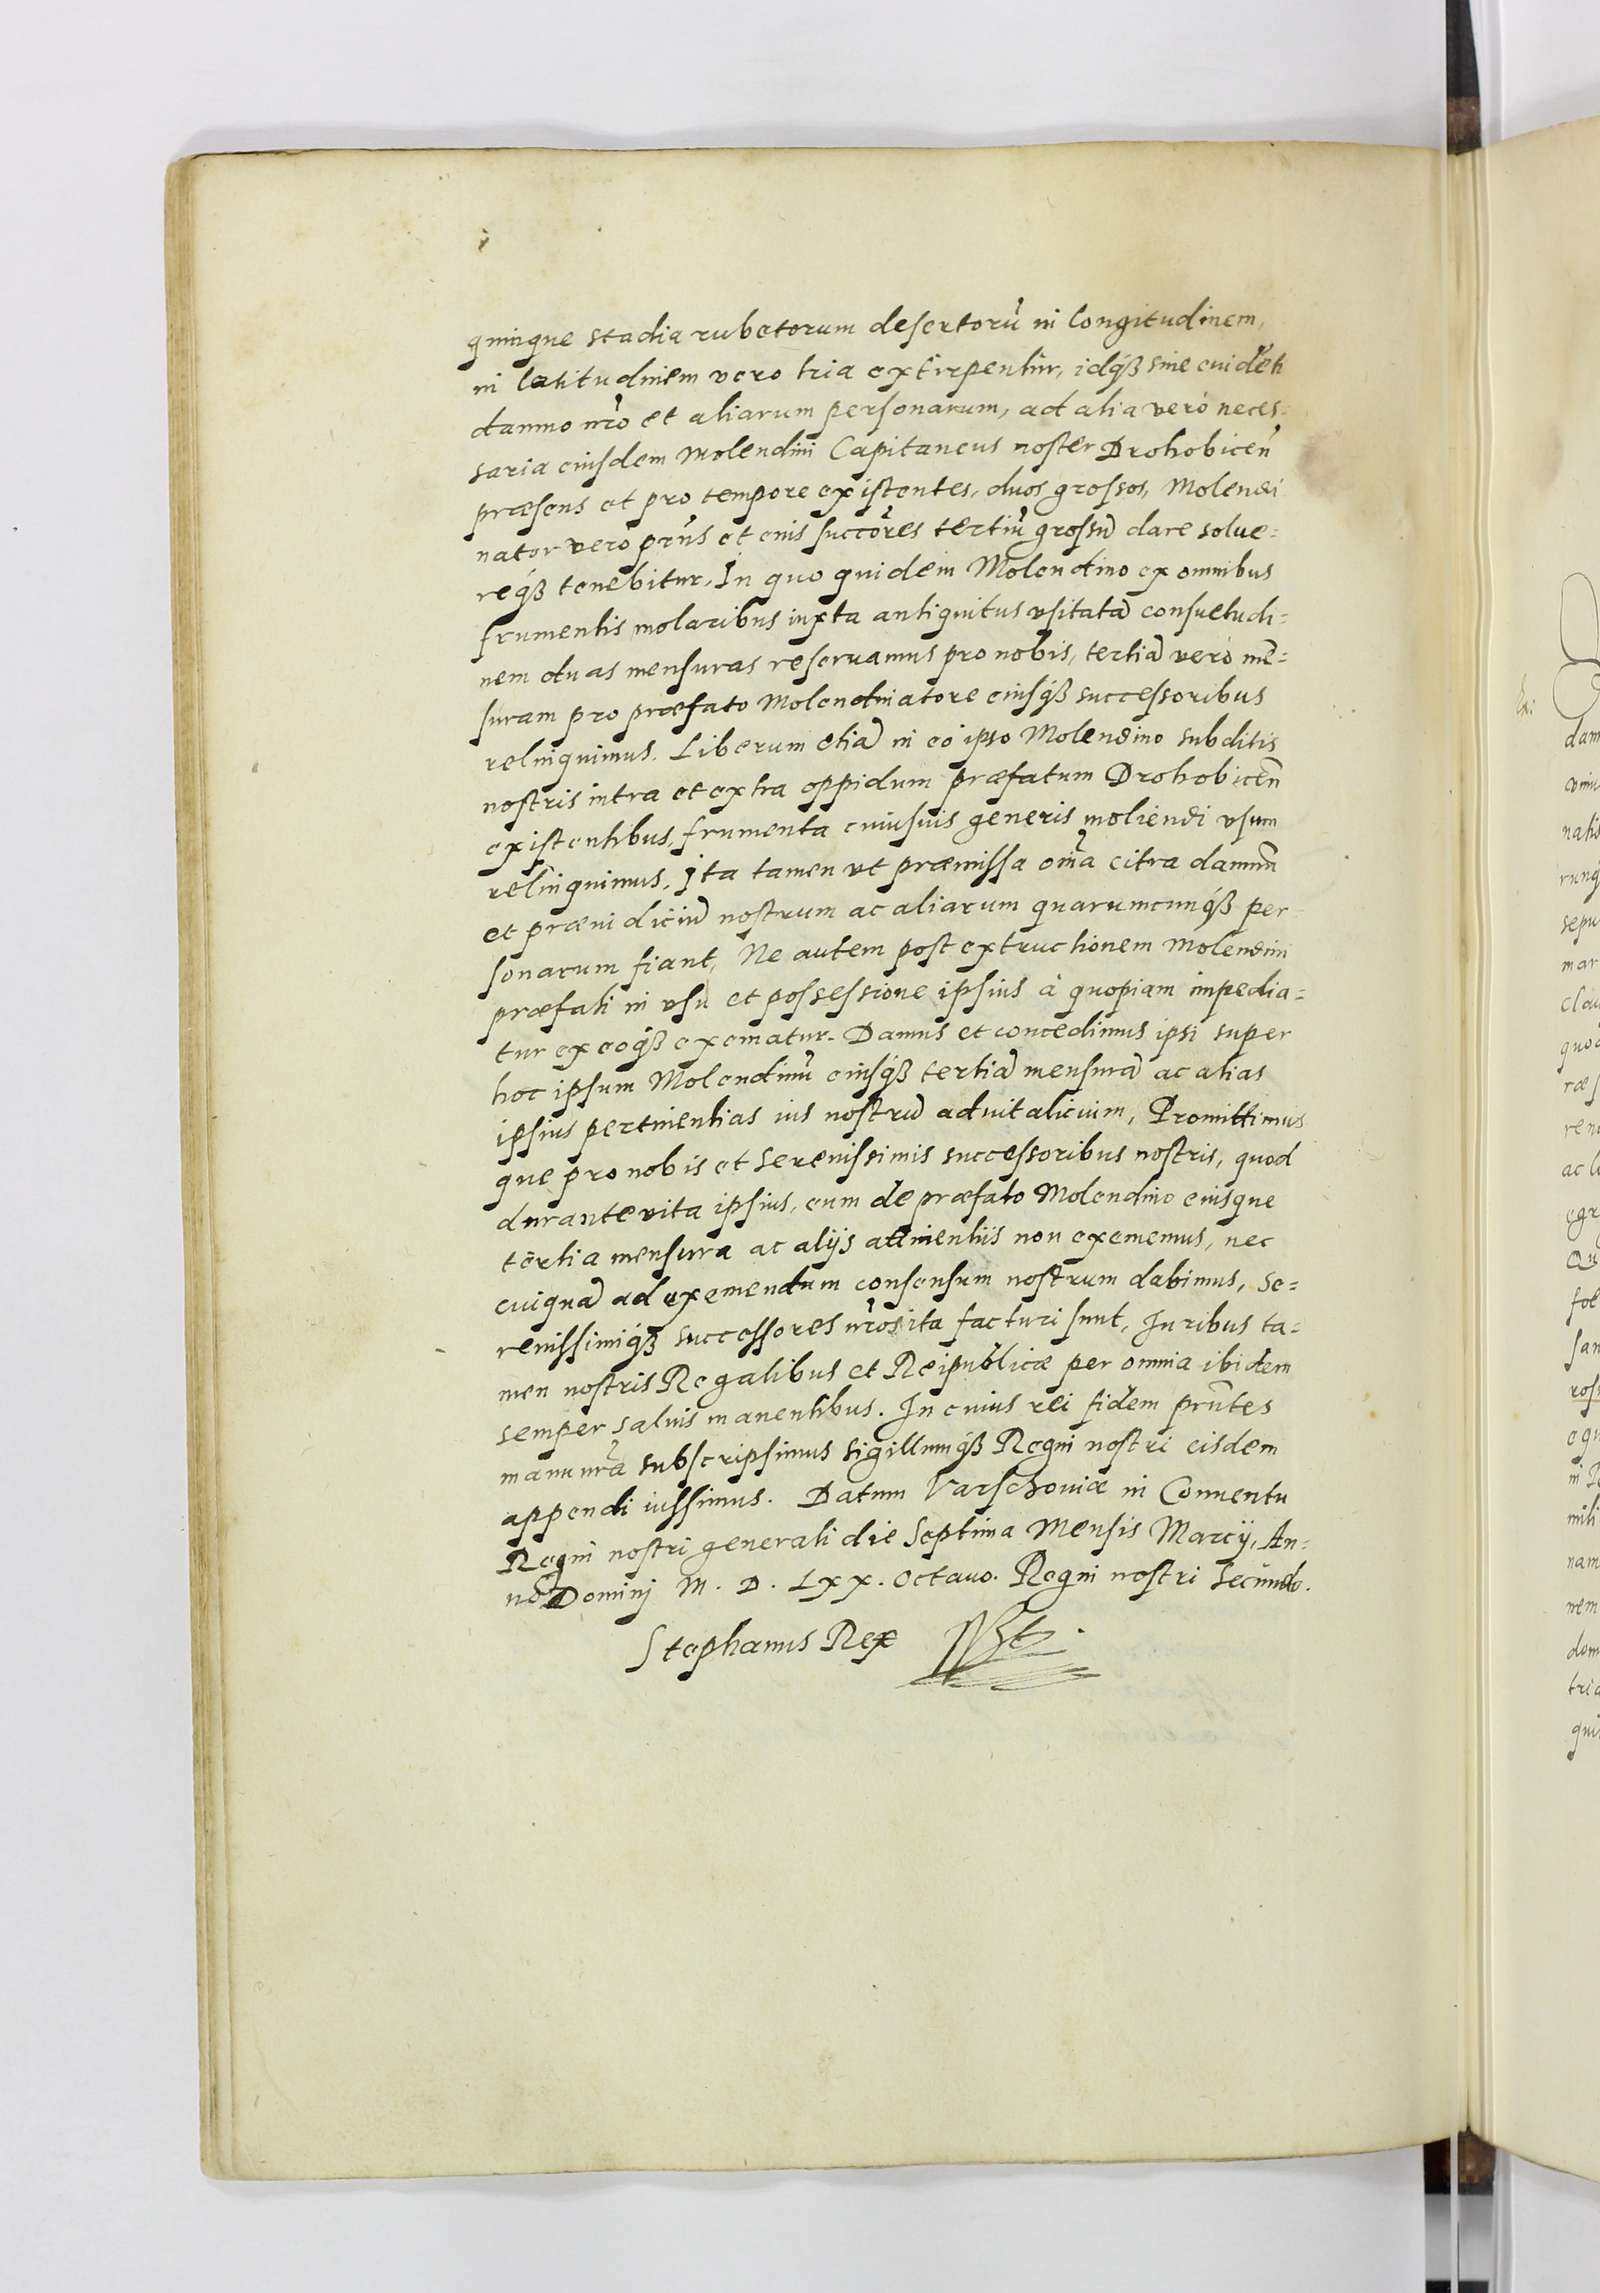 quinque stadia rubetorum desertorū in longitudinem,
in latitudinem vero tria extirpentur, idq́ȝ sine euidēti
damno nr̄o et aliarum personarum, ad alia verò neces-
saria eiusdem Molendini Capitaneus noster Drohobicen̄
præsens et pro tempore existentes, duos grossos, Molendi
nator verò prn̄s et eius succōres tertiū grossū dare solue-
req́ȝ tenebitur. In quo quidem Molendino ex omnibus
frumentis molaribus iuxta antiquitus vsitatā consuetudi-
nem duas mensuras reseruamus pro nobis, tertiā verò mē-
suram pro præfato Molendinatore eiusq́ȝ successoribus
relinquimus. Liberum etiā in eò ipso Molendino subditis
nostris intra et extra oppidum præfatum Drohobicen̄
existentibus, frumenta cuiusuis generis moliendi vsum
relinquimus, Ita tamen vt præmissa oīa citra damnū
et præiudiciū nostrum ac aliarum quarumcunq́ȝ per-
sonarum fiant, Ne autem post extructionem Molendini
præfati in vsu et possessione ipsius à quopiam impedia-
tur ex eoq́ȝ exematur. Damus et concedimus ipsi super
hoc ipsum Molendinū eiusq́ȝ tertiā mensurā ac alias
ipsius pertinentias ius nostrū aduitalicium, Promittimus
que pro nobis et Serenissimis successoribus nostris, quod
durante vita ipsius, eum de præfato Molendino eiusque
tertia mensura ac alijs attinentiis non exememus, nec
cuiquā ad exemendum consensum nostrum dabimus, Se-
renissimiq́ȝ successores nr̄os ita facturi sunt, Iuribus ta-
men nostris Regalibus et Reipublicæ per omnia ibidem
semper saluis manentibus. In cuius rei fidem prn̄tes
manu nr̄a subscripsimus sigillumq́ȝ Regni nostri eisdem
appendi iussimus. Datum Varschouiæ in Conuentu
Regni nostri generali die Septima Mensis Marcij, An-
no Dominj M. D. Lxx. octauo. Regni nostri Secundo.
Stephanus Rex